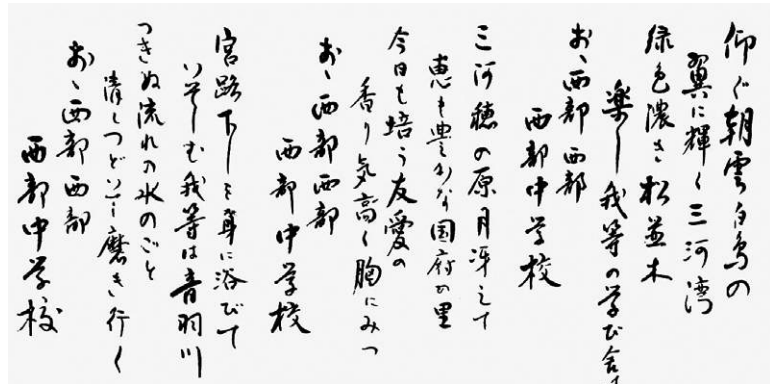 仰ぐ朝雲白鳥の
翼に輝く三河湾
緑色濃き松並木
楽し我等の学び舎
おゝ西部西部
西部中学校
三河穂の原月冴えて
恵も豊かな国府の里
今日も培う友愛の
香り気高く胸にみつ
おゝ西部西部
西部中学校
宮路下しを身に浴びて
いそしむ我等は音羽川
つきぬ流れの水のごと
清くつどひて磨き行く
おゝ西部西部
西部中学校